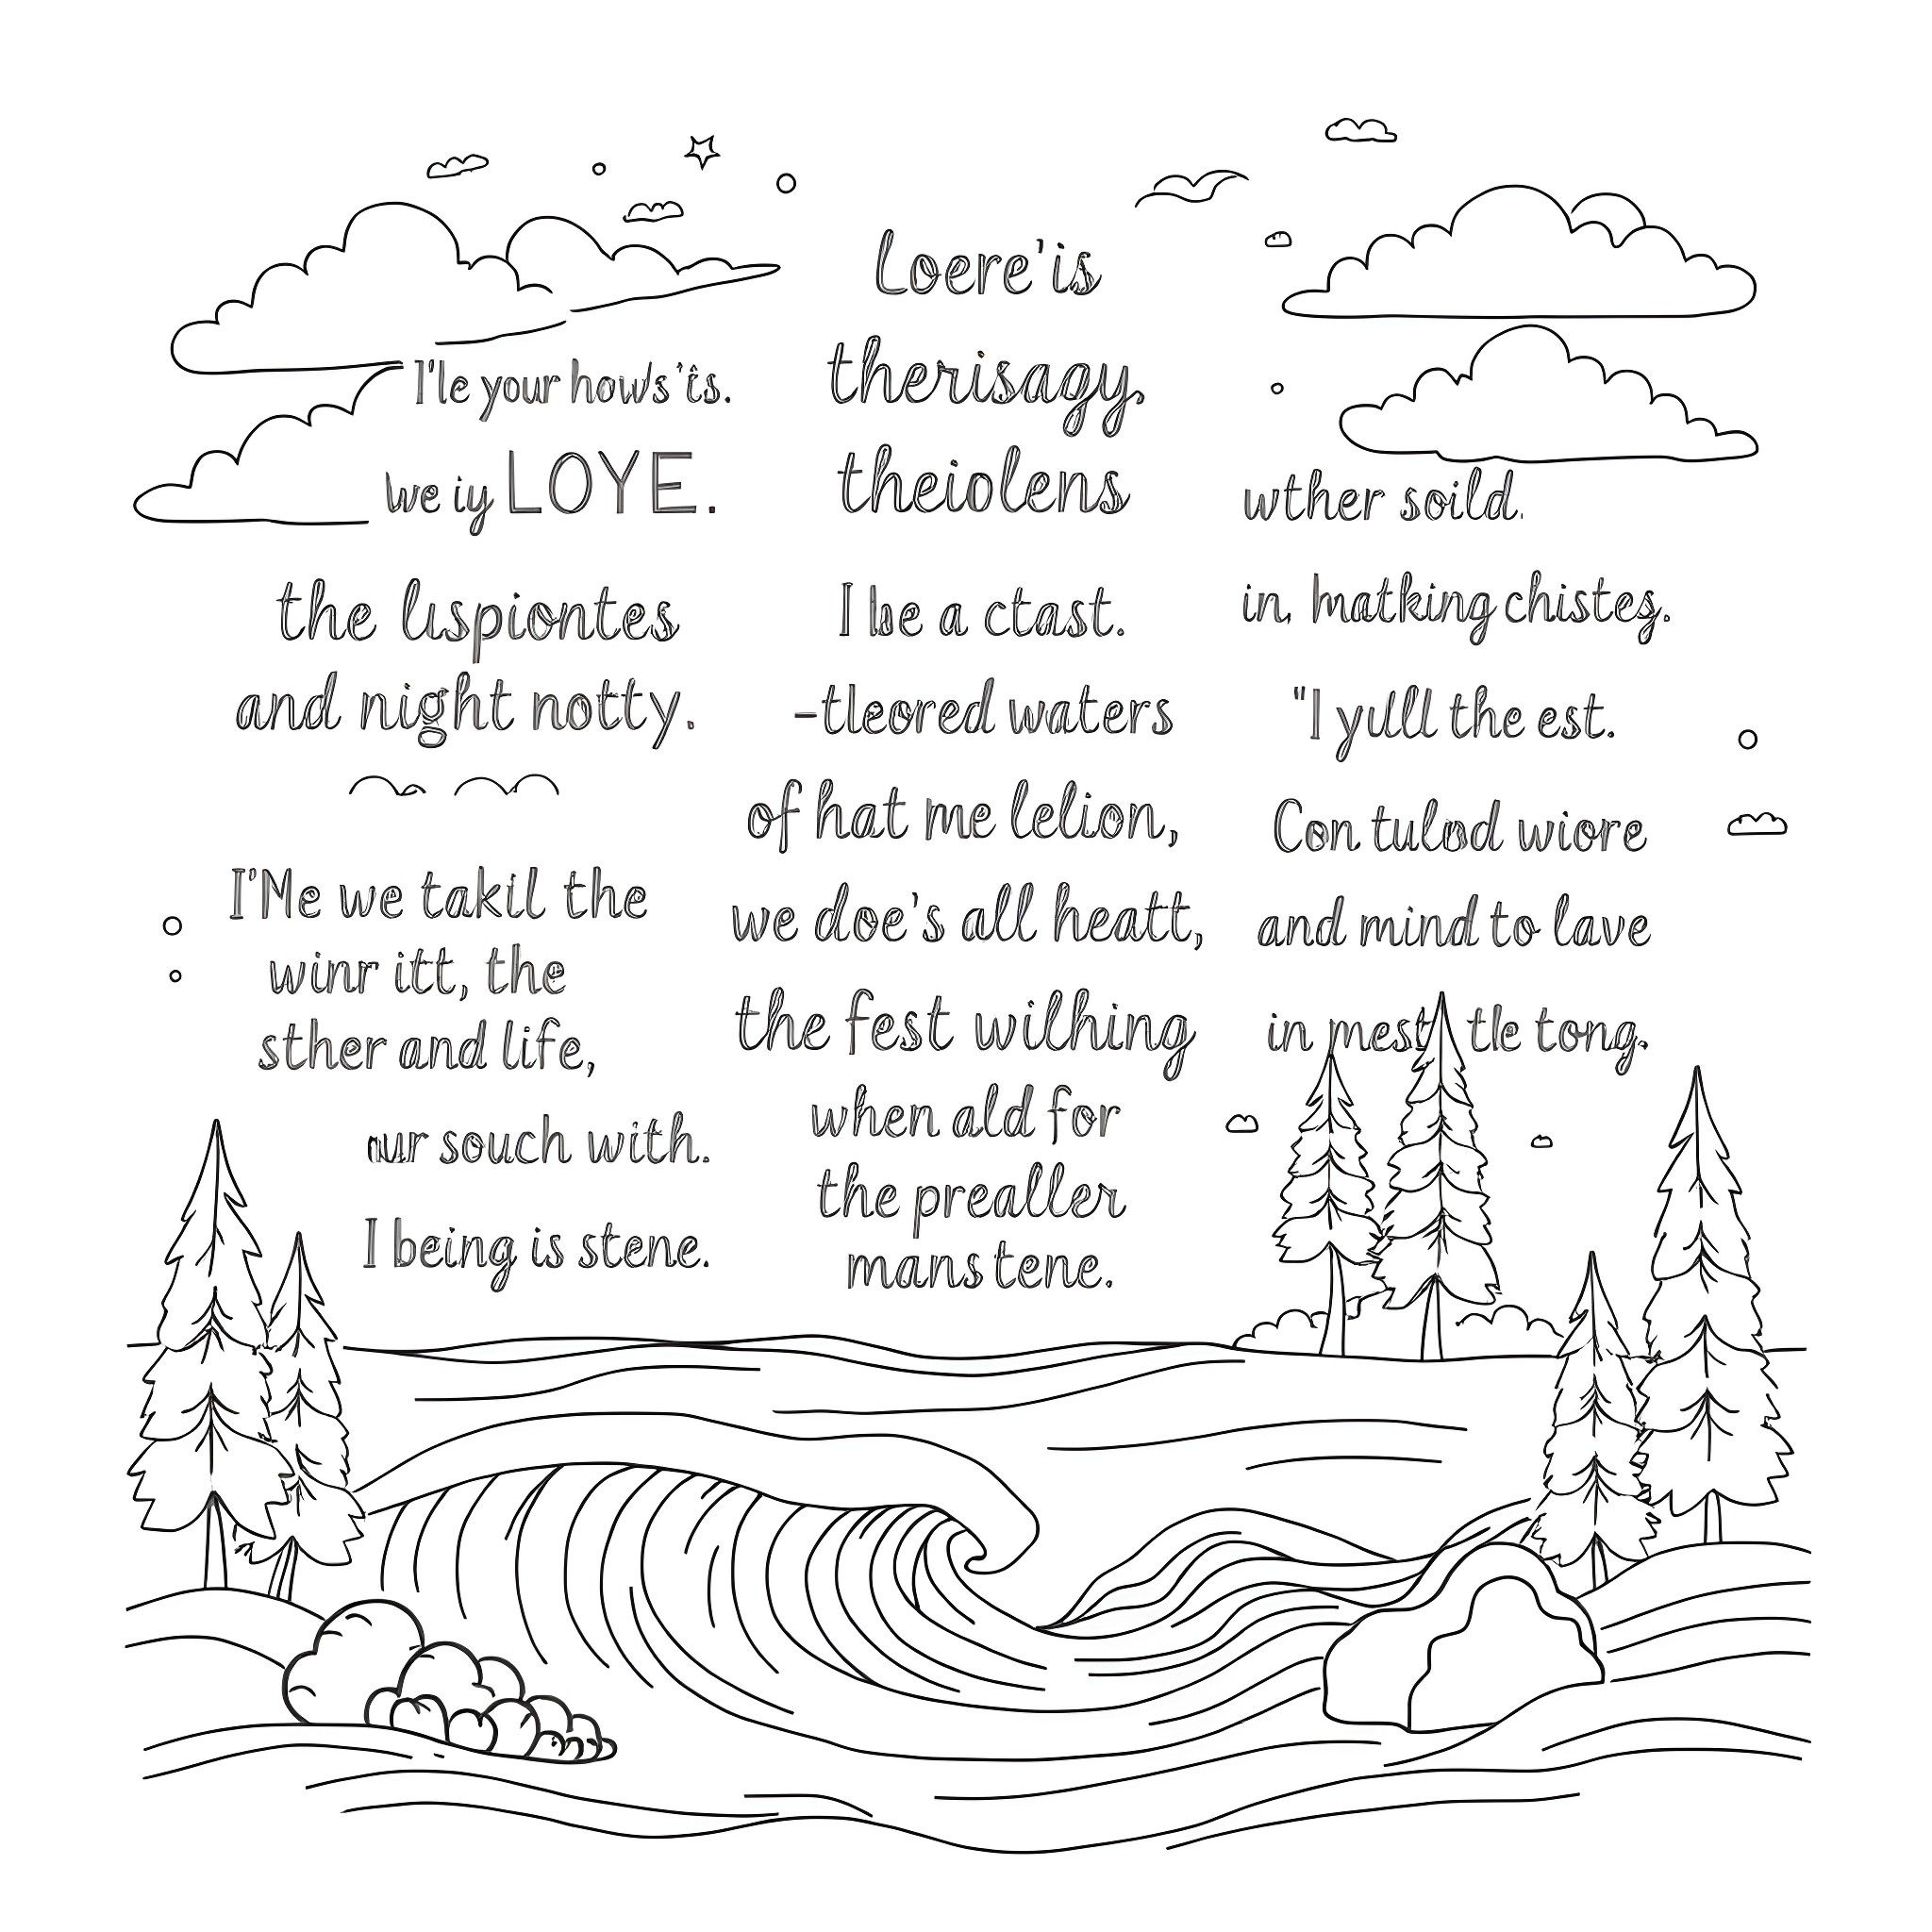 I'le your hows'ts.
we iy LOYE.
the lispiontes
and night notty.
I'Me we takil the
winr itt, the
sther and life,
our souch with.
I being is stene.
Loere'is
therisagy,
theiolens
I be a ctast.
-tleored waters
of hat me lelion,
we doe's all heatt,
the fest wilhing
when ald for
the prealler
mans tene.
wther soild.
in, matking chisteg.
"I yull the est.
Con tulod wiore
and mind to lave
in mest tle tong.